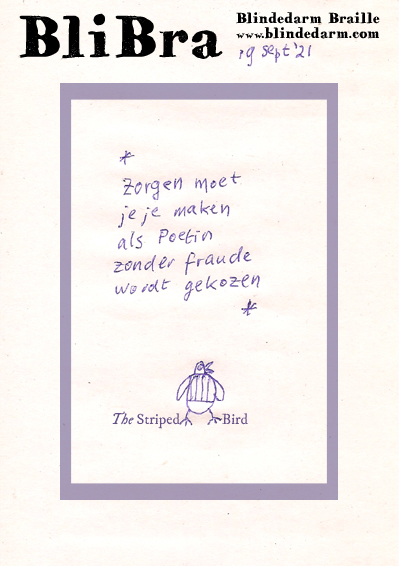 BliBra
Blindedarm Braille
www.blindedarm.com
19 sept '21
*
Zorgen moet
je je maken
als Poetin
zonder fraude
wordt gekozen
*
The Striped Bird